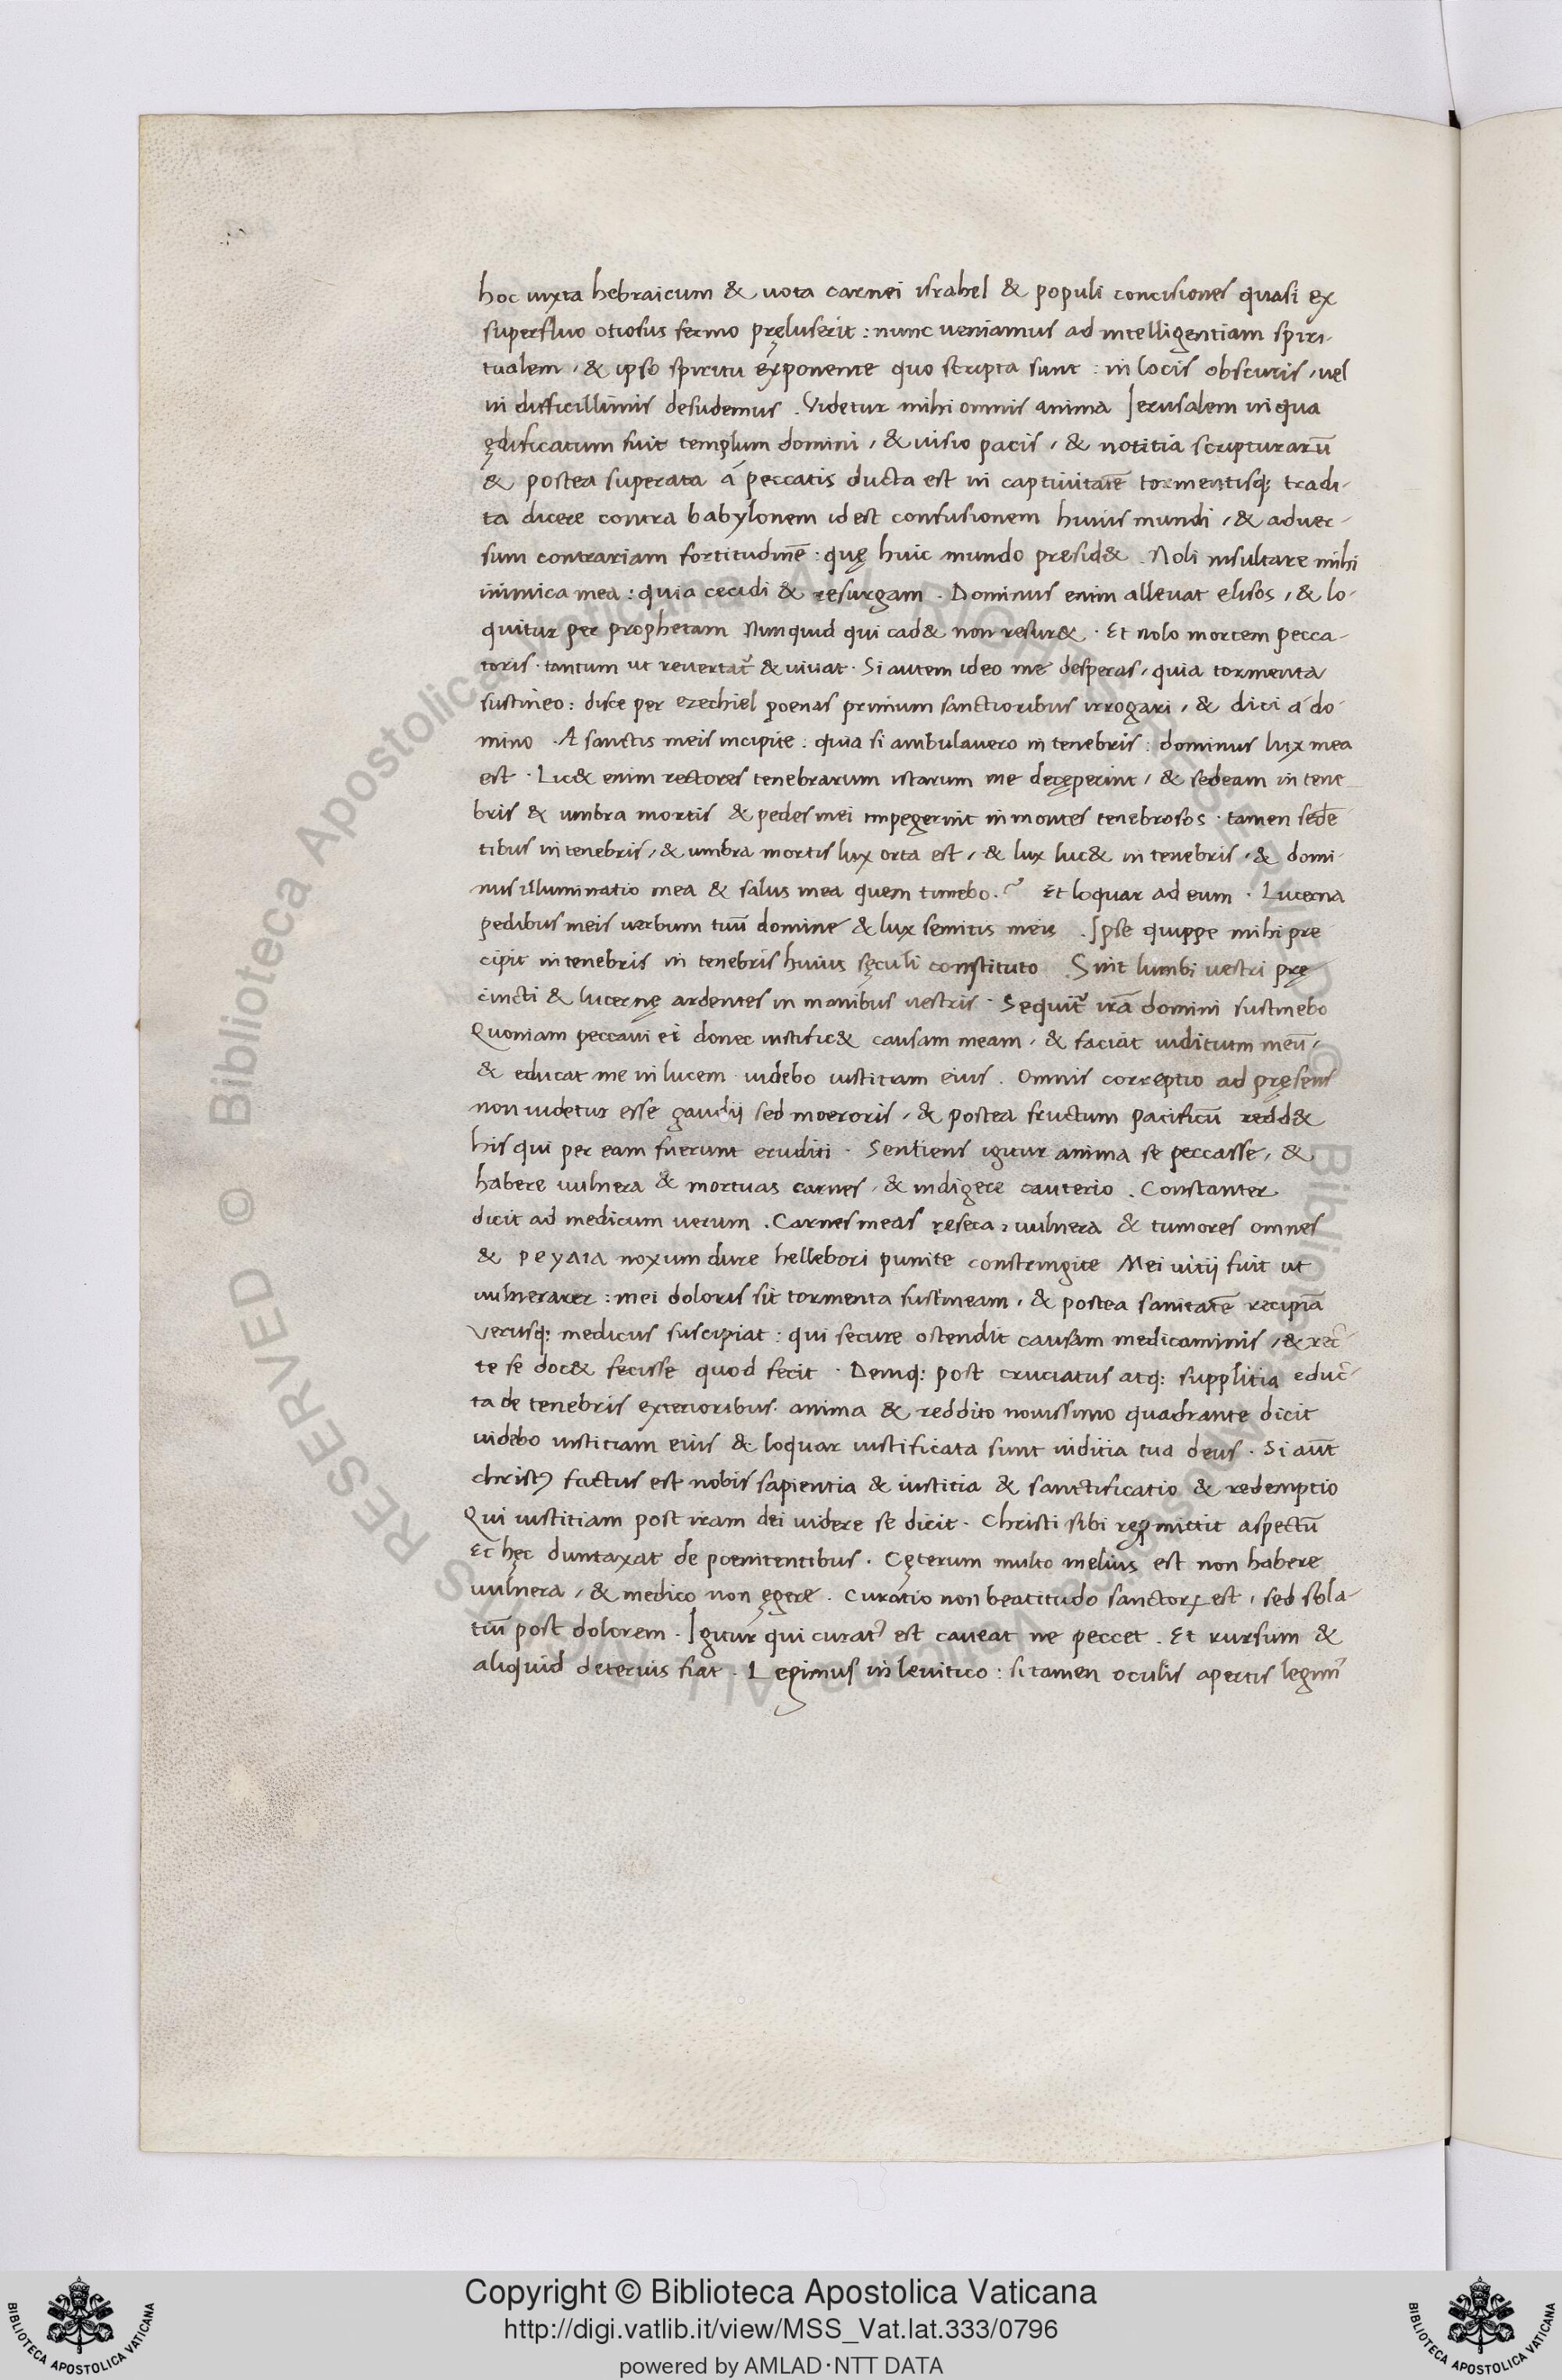 hoc iuxta hebraicum & uota carnei israhel & populi concisiones quasi ex
superfluo otiosus sermo pręluserit : nunc ueniamus ad intelligentiam spiri-
tualem , & ipso spiritu exponente quo scripta sunt : in locis obscuris , uel
in difficillimis desudemus . Videtur mihi omnis anima Jerusalem in qua
ędificatum fuit templum domini , & uisio pacis , & notitia scripturarū
& postea superata á peccatis ducta est in captiuitatē tormentisq; tradi-
ta dicere contra babylonem id est confusionem huius mundi , & aduer-
sum contrariam fortitudinē : quę huic mundo presid& . Noli insultare mihi
inimica mea : quia cecidi & resurgam . Dominus enim alleuat elisos , & lo-
quitur per prophetam Nunquid qui cad& non resur& . Et nolo mortem pecca-
toris . tantum ut reuertat᷑ & uiuat . Si autem ideo me desperas , quia tormenta
sustineo : disce per ezechiel poenas primum sanctioribus irrogari , & dici á do-
mino . A sanctis meis incipite : quia si ambulauero in tenebris : dominus lux mea
est . Lic& enim rectores tenebrarum istarum me decęperint , & sedeam in tene
bris & umbra mortis & pedes mei impegerint in montes tenebrosos . tamen sedē
tibus in tenebris , & umbra mortis lux orta est , & lux luc& in tenebris , & domi-
nus illuminatio mea & salus mea quem timebo . ? Et loquar ad eum . Lucerna
pedibus meis uerbum tuū domine & lux semitis meis . Ipse quippe mihi pre
cipit in tenebris in tenebris huius sęculi constituto . Sint lumbi uestri prę
cincti & lucernę ardentes in manibus uestris . Sequit᷑ irā domini sustinebo
Quoniam peccaui ei donec iustific& causam meam , & faciat iuditium meū ,
& educat me in lucem uidebo iustitiam eius . Omnis correptio ad pręsens
non uidetur esse gaudij sed moeroris , & postea fructum pacificū redd&
his qui per eam fuerunt eruditi . Sentiens igitur anima se peccasse , &
habere uulnera & mortuas carnes , & indigere cauterio . Constanter
dicit ad medicum uerum . Carnes meas reseca , uulnera & tumores omnes
& noxum dure hellebori punite constringite Mei uitij fuit ut
uulnerarer : mei doloris sit tormenta sustineam , & postea sanitatē recipiā
Verusq; medicus suscipiat : qui secure ostendit causam medicaminis , & rec-
te se doc& fecisse quod fecit . Deniq; post cruciatus atq; supplitia educ-
ta de tenebris exterioribus anima & reddito nouissimo quadrante dicit
uidebo iustitiam eius & loquar iustificata sunt iuditia tua deus . Si aūt
christ⁹ factus est nobis sapientia & iustitia & sanctificatio & redemptio
Qui iustitiam post iram dei uidere se dicit . Christi sibi repmittit aspectū
Et hęc duntaxat de poenitentibus . Cęterum multo melius est non habere
uulnera , & medico non ęgere . Curatio non beatitudo sanctoꝝ est , sed sola-
tiū post dolorem . Igitur qui curat⁹ est caueat ne peccet . Et rursum &
aliquid deterius fiat . Legimus in leuitico : si tamen oculis apertis legim⁹
Copyright © Biblioteca Apostolica Vaticana
http://digi.vatlib.it/view/MSS_Vat.lat.333/0796
powered by AMLAD·NTT DATA